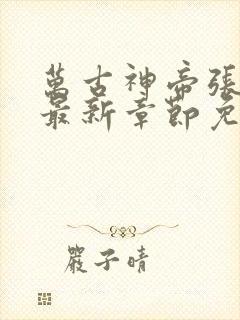 萬古神帝張
最新章節免
嚴子晴